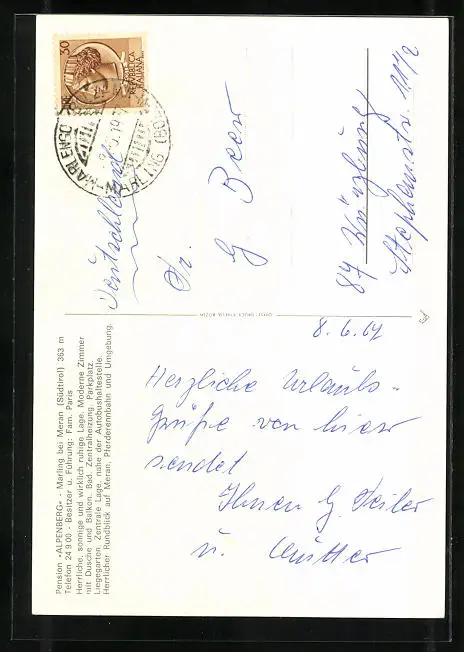 30
REPUBBLICA
ITALIANA
MARLENGO
Deutschland
Fr.
G Beer
87 Würzburg
Stephanstr. 11 1/2
8.6.67
Herzliche Urlaubs-
grüße von hier
sendet
Ihnen G.
u. Mutter
Pension »ALPENBERG« - Marling bei Meran (Südtirol) 363 m
Telefon 24 9 00 - Besitzer u. Führung: Fam. Paris
Herrliche, sonnige und wirklich ruhige Lage. Moderne Zimmer
mit Dusche und Balkon. Bad. Zentralheizung. Parkplatz.
Liegegarten. Zentrale Lage, nahe der Autobushaltestelle.
Herrlicher Rundblick auf Meran, Pferderennbahn und Umgebung.